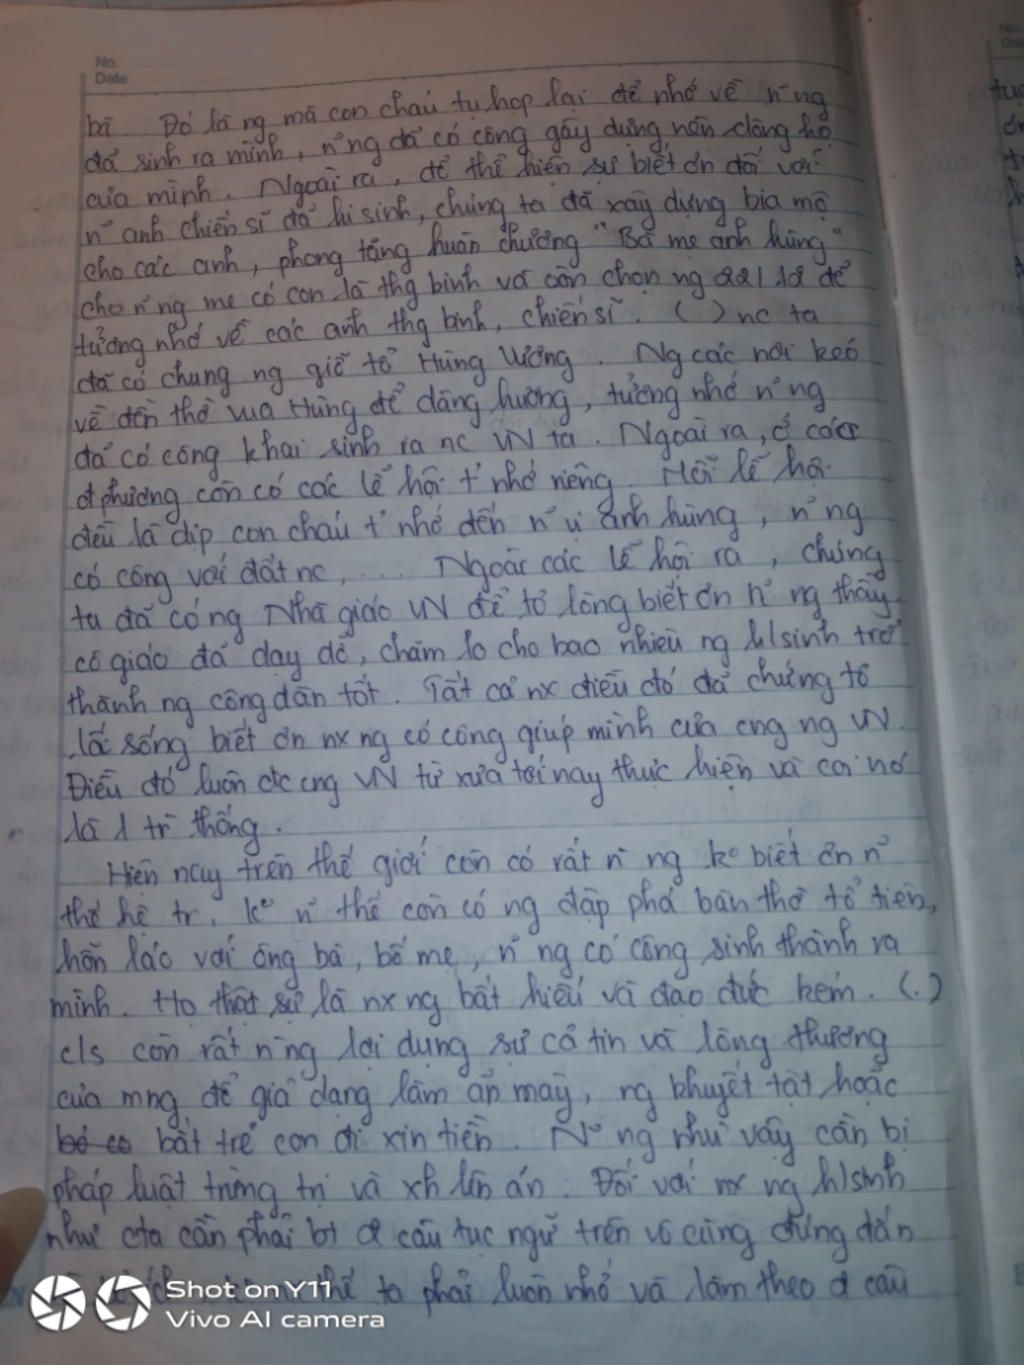 No.
Date
bà Đó là ng mà con cháu tụ họp lại để nhớ về n~ng
đã sinh ra mình, n~ng đã có công gây dựng nên dòng họ
của mình. Ngoài ra, để thể hiện sự biết ơn đối với
n~ anh chiến sĩ đã hi sinh, chúng ta đã xây dựng bia mộ
cho các anh, phong tặng huân chương "Bà mẹ anh hùng"
cho n~ng mẹ có con là thg binh và còn chọn ng 22/12 để
tưởng nhớ về các anh thg binh, chiến sĩ. ( ) nc ta
đã có chung ng giỗ tổ Hùng Vương. Ng các nơi kéo
về đền thờ vua Hùng để dâng hương, tưởng nhớ n~ng
đã có công khai sinh ra nc VN ta. Ngoài ra, ở các
đphương còn có các lễ hội t' nhớ riêng. Mỗi lễ hội
đều là dịp con cháu t' nhớ đến n~ vị anh hùng, n~ng
có công với đất nc, ... Ngoài các lễ hội ra, chúng
ta đã có ng Nhà giáo VN để tỏ lòng biết ơn n~ng thầy
cô giáo đã dạy dỗ, chăm lo cho bao nhiêu ng h/sinh trở
thành ng công dân tốt. Tất cả nx điều đó đã chứng tỏ
lẽ sống biết ơn nx ng có công giúp mình của cng ng VN.
Điều đó luôn đc cng VN từ xưa tới nay thực hiện và coi nó
là 1 tr` thống.
Hiện nay trên thế giới còn có rất n` ng ko biết ơn n~
thế hệ tr. ko n~ thế còn có ng đập phá bàn thờ tổ tiên,
hỗn láo với ông bà, bố mẹ, n~ng có công sinh thành ra
mình. Họ thật sự là nx ng bất hiếu và đạo đức kém. (.)
c/s còn rất n`ng lợi dụng sự cả tin và lòng thương
của mng để giả dạng làm ăn mày, ng khuyết tật hoặc
bắt trẻ con đi xin tiền. N~ng như vậy cần bị
pháp luật trừng trị và xh lên án. Đối với nx ng h/sinh
như cta cần phải bt đc câu tục ngữ trên vô cùng đúng đắn
thế ta phải luôn nhớ và làm theo đc câu
Shot on Y11
Vivo AI camera